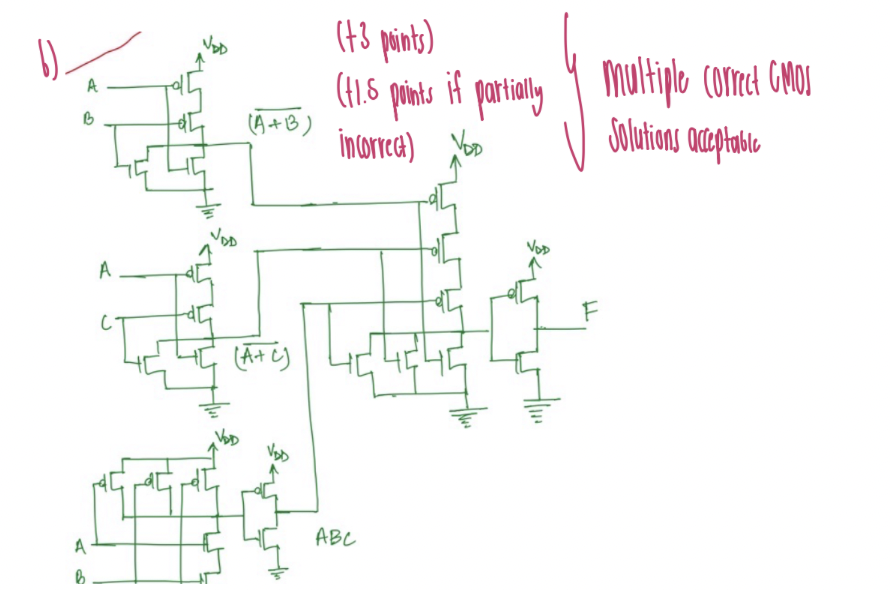 b)
(+3 points)
(+1.5 points if partially
incorrect)
multiple correct CMOS
solutions acceptable
VDD
A
B
(A+B)̅
VDD
VDD
A
C
(A+C)̅
VDD
F
VDD
VDD
A
B
ABC